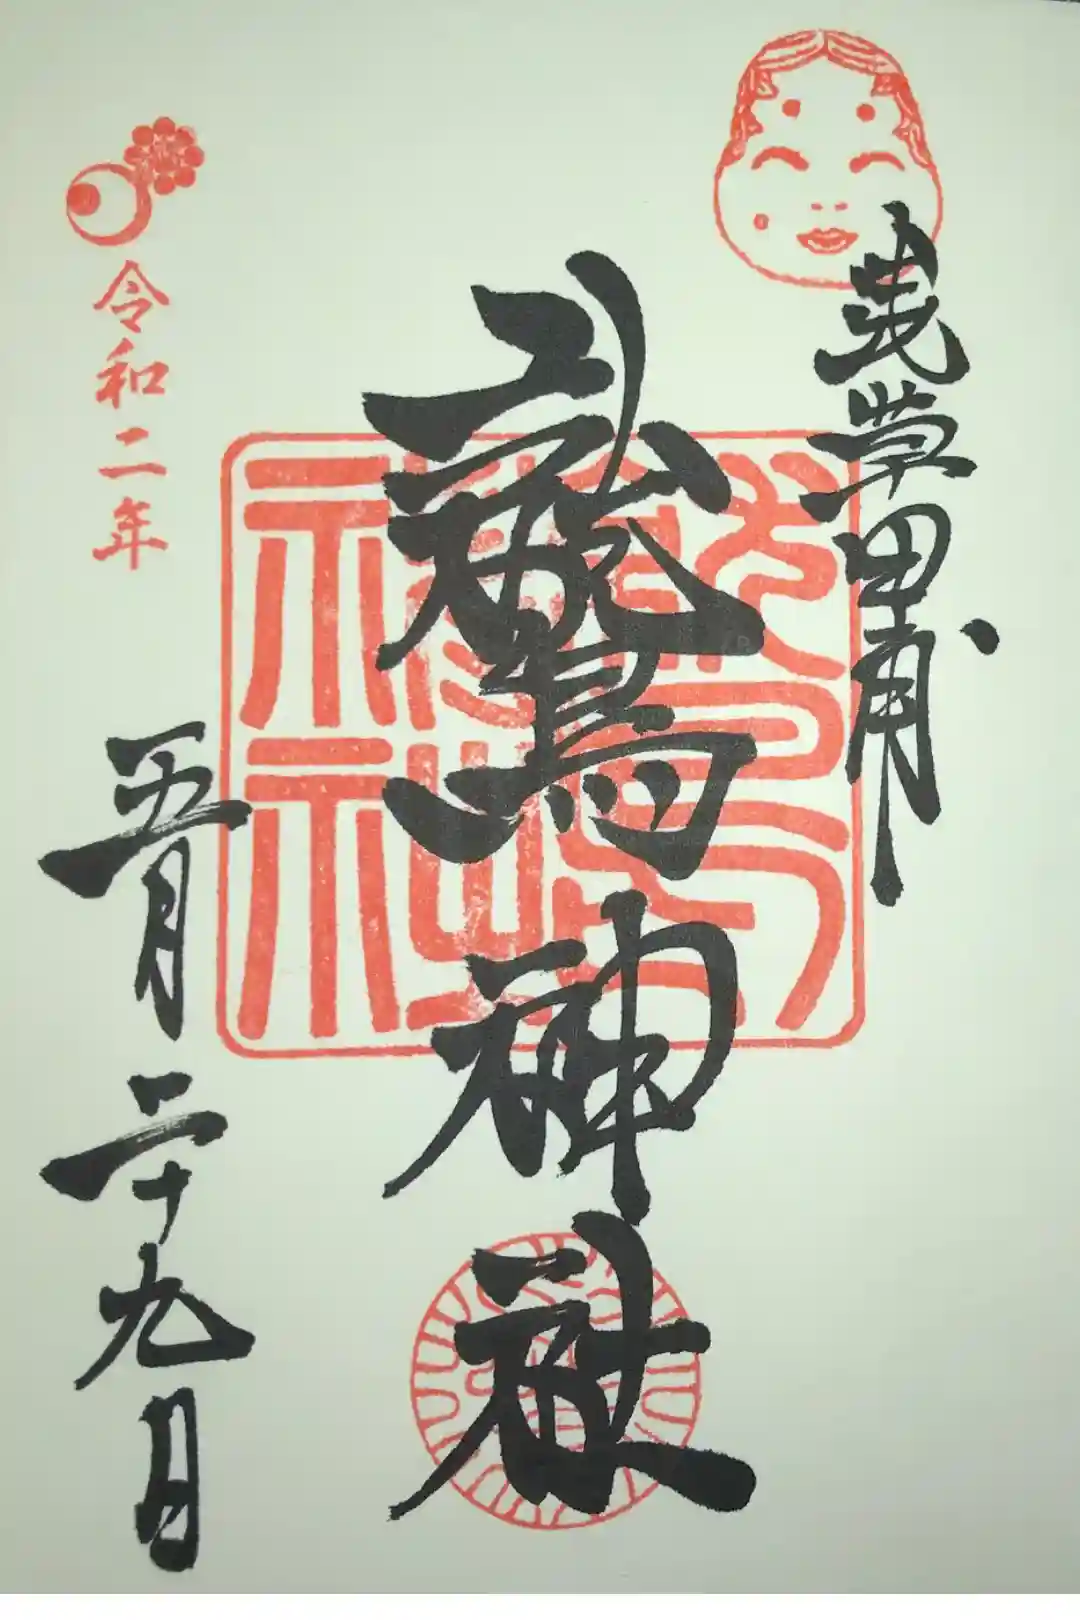 浅草田甫
鷲神社
令和二年
五月二十九日